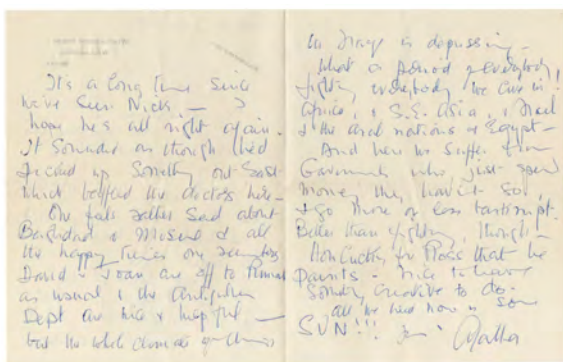 It's a long time since
we've seen Nick — I
hope he's all right again.
It sounded as though he'd
picked up something out East
which baffled the doctors here —
One feels rather sad about
Baghdad & Mosul & all
the happy times one
David & Joan are off to
as usual & the Antiquities
Dept are nice & helpful —
but the whole climate of
in Iraq is depressing —
What a period of everybody
fighting everybody we live in!
Africa, & S.E. Asia, & Israel
& the Arab nations & Egypt —
And here we suffer from
Governments who just spend
money they haven't got,
& go more or less bankrupt.
Better than fighting, though —
How lucky for that he
paints — nice to have
something creative to do —
All we need now is some
SUN!!!
Agatha